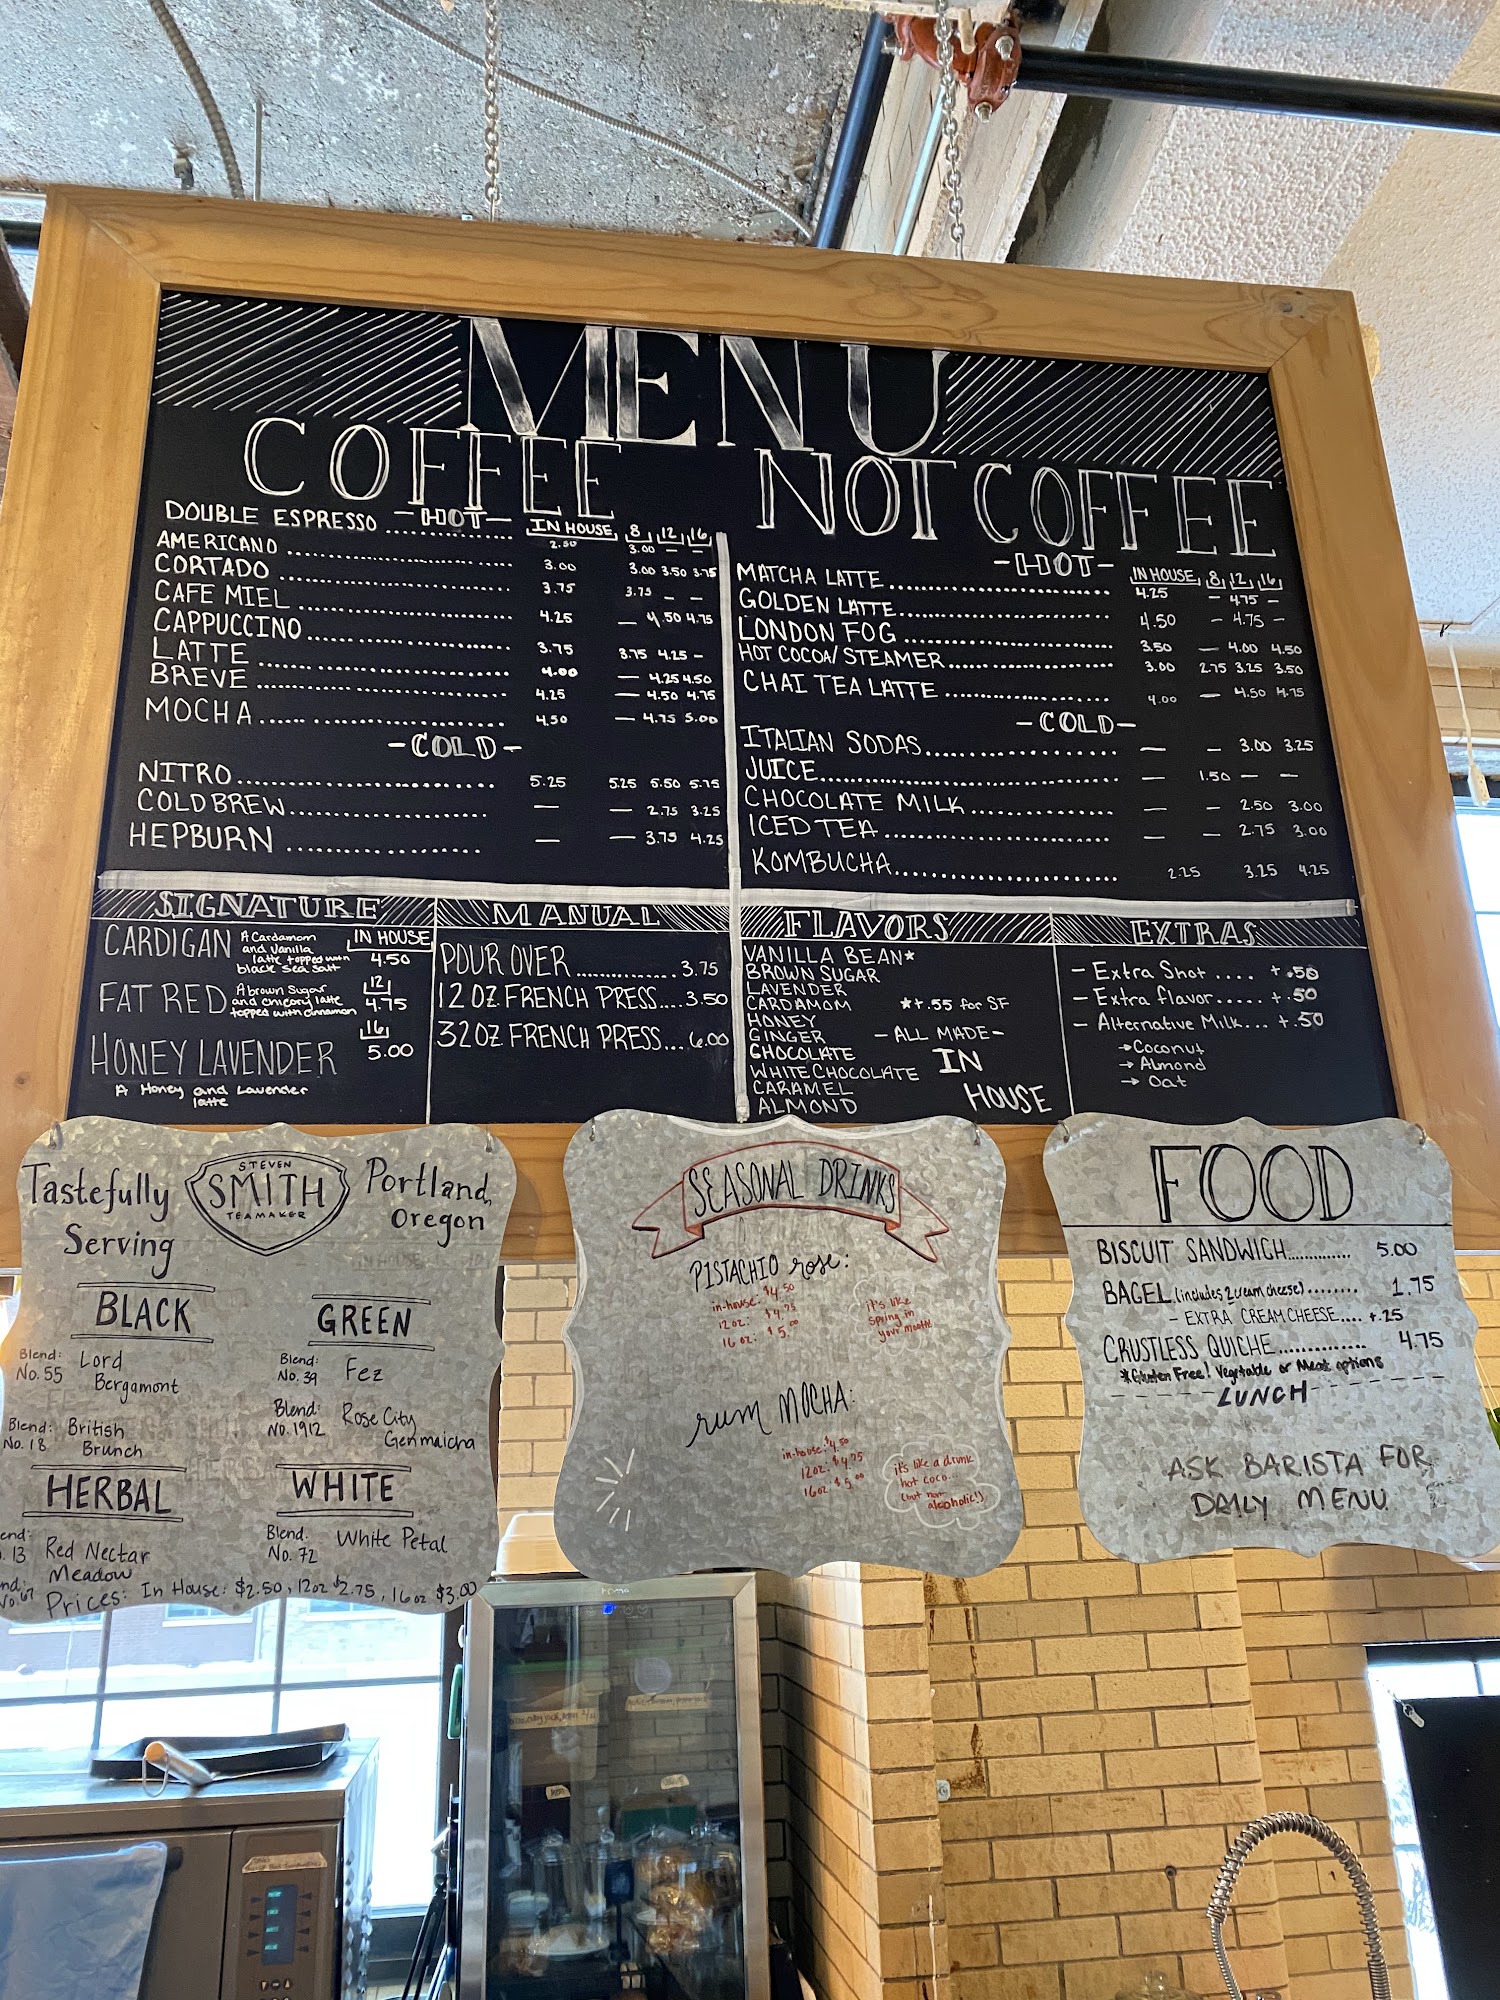 MENU
COFFEE
-HOT-
IN HOUSE 8 12 16
DOUBLE ESPRESSO ........ 2.50 3.00 — —
AMERICANO ........ 3.00 3.00 3.50 3.75
CORTADO ........ 3.75 3.75 — —
CAFE MIEL ........ 4.25 — 4.50 4.75
CAPPUCCINO ........ 3.75 3.75 4.25 -
LATTE ........ 4.00 — 4.25 4.50
BREVE ........ 4.25 — 4.50 4.75
MOCHA ........ 4.50 — 4.75 5.00
-COLD-
NITRO ........ 5.25 5.25 5.50 5.75
COLD BREW ........ — — 2.75 3.25
HEPBURN ........ — — 3.75 4.25
NOT COFFEE
-HOT-
IN HOUSE 8 12 16
MATCHA LATTE ........ 4.25 — 4.75 —
GOLDEN LATTE ........ 4.50 — 4.75 —
LONDON FOG ........ 3.50 — 4.00 4.50
HOT COCOA/STEAMER ........ 3.00 2.75 3.25 3.50
CHAI TEA LATTE ........ 4.00 — 4.50 4.75
-COLD-
ITALIAN SODAS ........ — — 3.00 3.25
JUICE ........ — 1.50 — —
CHOCOLATE MILK ........ — — 2.50 3.00
ICED TEA ........ — — 2.75 3.00
KOMBUCHA ........ 2.25 3.25 4.25
SIGNATURE
CARDIGAN A Cardamom IN HOUSE
and Vanilla 4.50
latte topped with
black sea salt
FAT RED A brown Sugar 12
and cinnamon latte 4.75
topped with cinnamon
HONEY LAVENDER 16
5.00
A Honey and Lavender
latte
MANUAL
POUR OVER ........ 3.75
12 OZ. FRENCH PRESS.... 3.50
32 OZ FRENCH PRESS.... 6.00
FLAVORS
VANILLA BEAN*
BROWN SUGAR
LAVENDER
CARDAMOM *+.55 for SF
HONEY
GINGER - ALL MADE -
CHOCOLATE IN
WHITE CHOCOLATE HOUSE
CARAMEL
ALMOND
EXTRAS
- Extra Shot .... +.50
- Extra flavor..... +.50
- Alternative Milk... +.50
→ Coconut
→ Almond
→ Oat
Tastefully
Serving
STEVEN
SMITH
TEAMAKER
Portland,
Oregon
BLACK
Blend: Lord
No. 55 Bergamont
Blend: British
No. 18 Brunch
GREEN
Blend: Fez
No. 39
Blend: Rose City
No. 1912 Genmaicha
HERBAL
Red Nectar
13
Meadow
No. 67
WHITE
Blend. White Petal
No. 72
Prices: In House: $2.50, 12oz $2.75, 16oz $3.00
SEASONAL DRINKS
PISTACHIO rose:
in-house: $4.50
12oz: $4.75
16oz: $5.00
it's like
spring in
your mouth!
rum MOCHA:
in-house: $4.50
12oz: $4.75
16oz: $5.00
it's like a drunk
hot coco...
(but non
alcoholic!)
FOOD
BISCUIT SANDWICH............. 5.00
BAGEL (includes 2 cream cheese)........ 1.75
- EXTRA CREAM CHEESE.... +.25
CRUSTLESS QUICHE.............. 4.75
*Gluten Free! Vegetable or Meat options
LUNCH
ASK BARISTA FOR
DAILY MENU